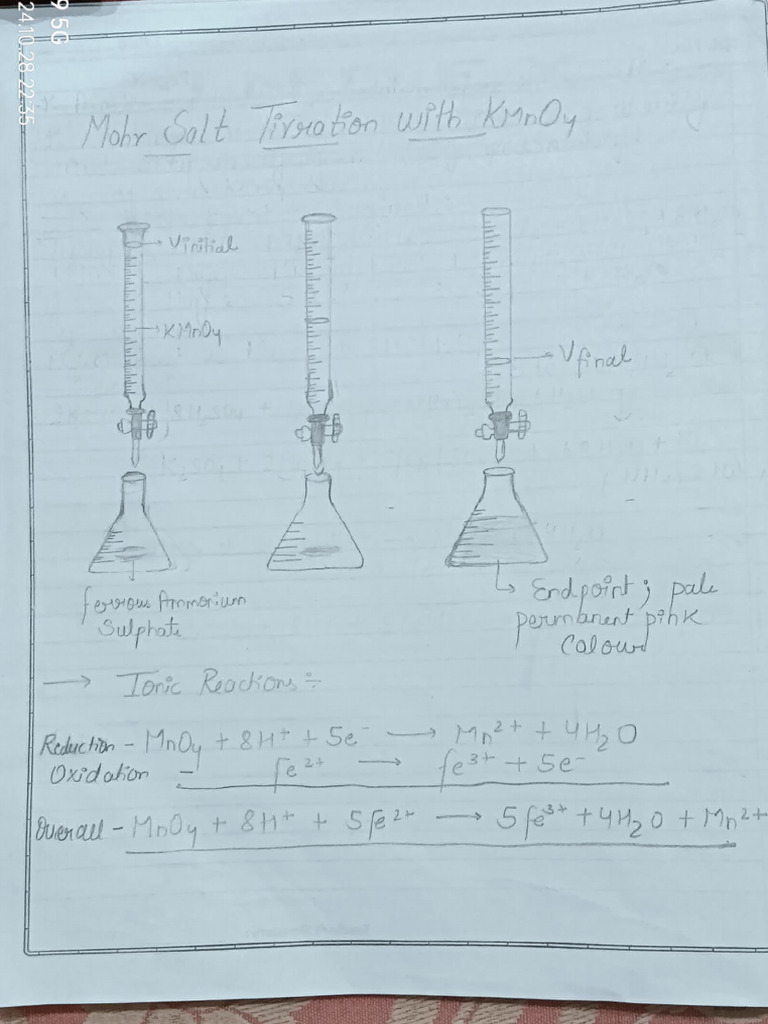 9 5G
24.10.28 22:35
Mohr Salt Tirration with KMnO4
Vinitial
KMnO4
Vfinal
ferrous Ammonium
Sulphate
Endpoint; pale
permanent pink
Colour
→ Ionic Reactions:-
Reduction - MnO4 + 8H+ + 5e- → Mn2+ + 4H2O
Oxidation - fe2+ → fe3+ + 5e-
Overall - MnO4 + 8H+ + 5fe2+ → 5fe3+ + 4H2O + Mn2+